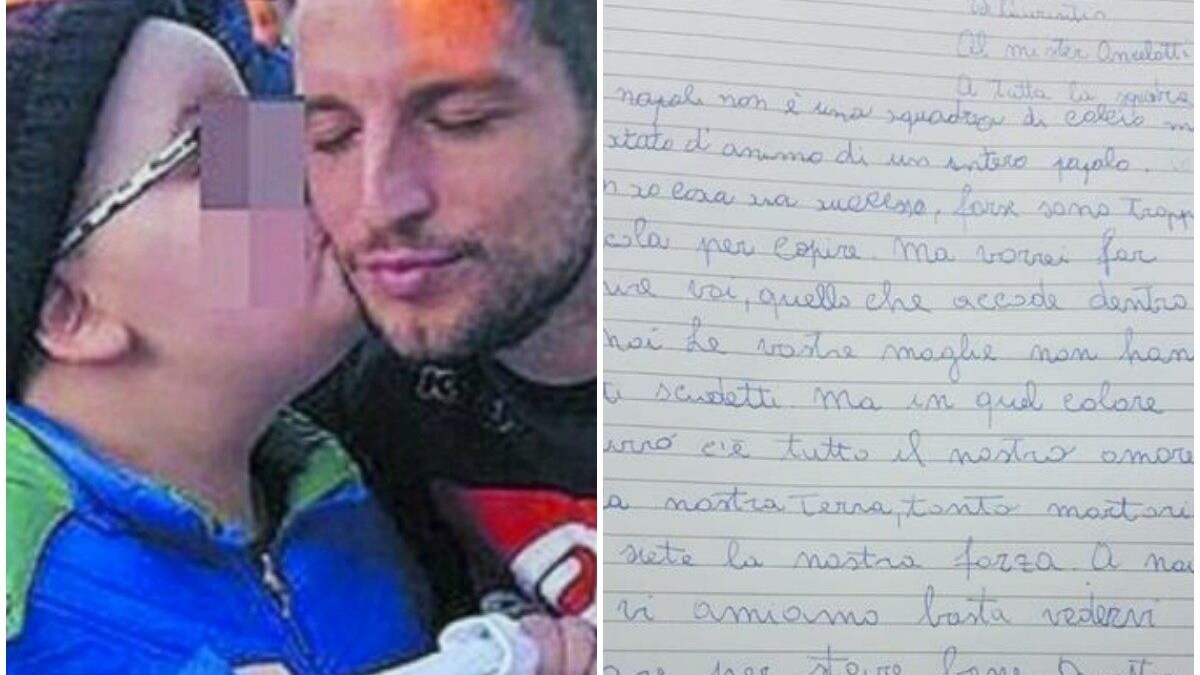 Laurentiis
Al mister Ancelotti
A tutta la squadra
napoli non è una squadra di calcio m
stato d'animo di un intero popolo.
n so cosa sia successo, forse sono tropp
cola per capire. Ma vorrei far
ire voi, quello che accade dentro
noi Le vostre maglie non han
ti scudetti. Ma in quel colore
urro c'è tutto il nostro amore
a nostra terra, tanto martori
siete la nostra forza. A noi
vi amiamo basta vedervi
per stare bene